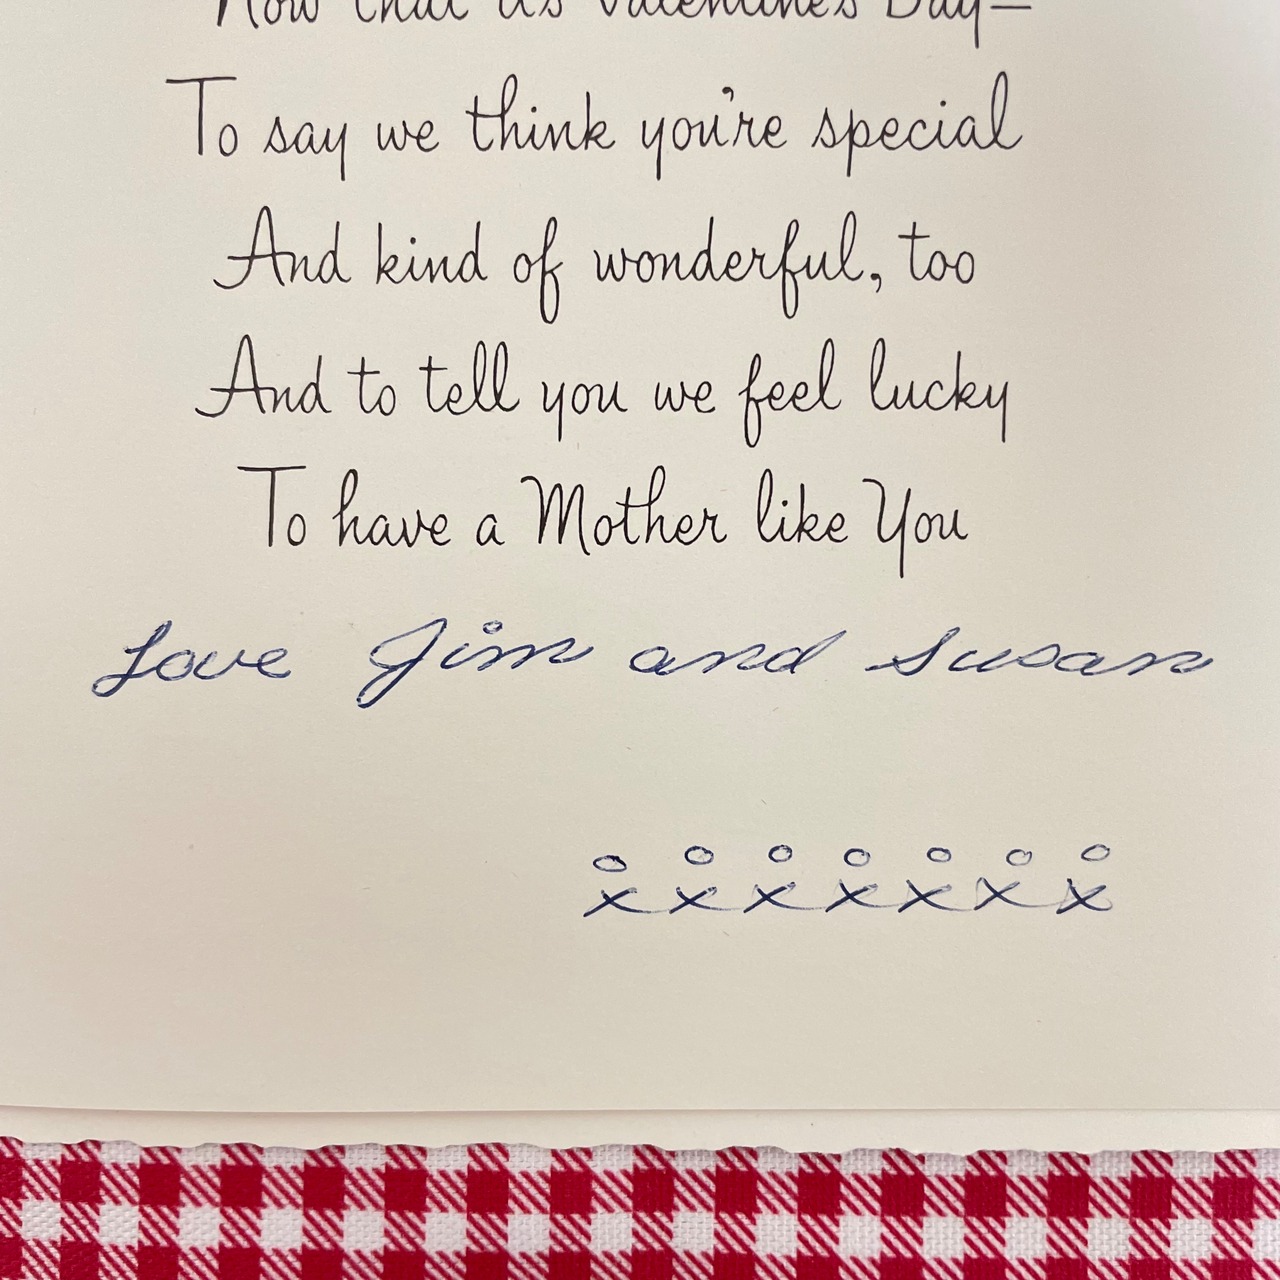 Now that it's Valentine's Day—
To say we think you're special
And kind of wonderful, too
And to tell you we feel lucky
To have a Mother like You
Love Jim and Susan
o o o o o o o
x x x x x x x